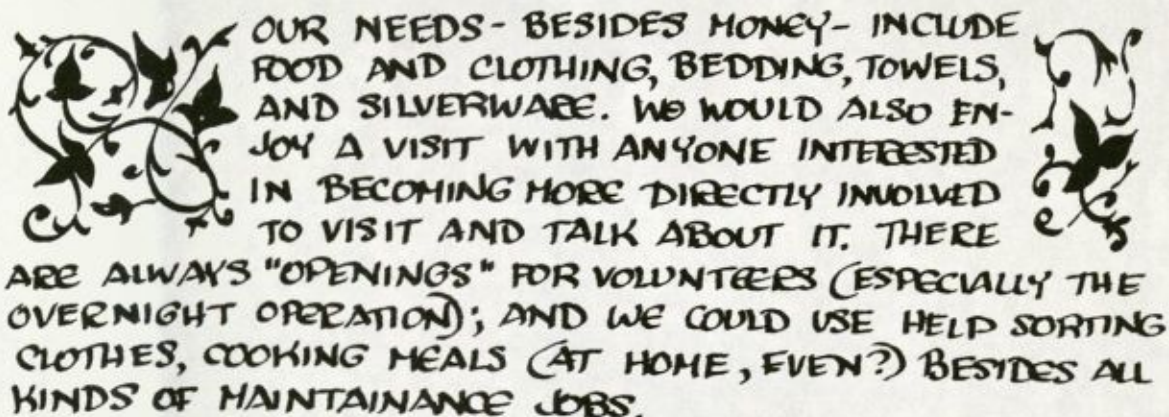 OUR NEEDS - BESIDES MONEY - INCLUDE
FOOD AND CLOTHING, BEDDING, TOWELS,
AND SILVERWARE. WE WOULD ALSO EN-
JOY A VISIT WITH ANYONE INTERESTED
IN BECOMING MORE DIRECTLY INVOLVED
TO VISIT AND TALK ABOUT IT. THERE
ARE ALWAYS "OPENINGS" FOR VOLUNTEERS (ESPECIALLY THE
OVERNIGHT OPERATION); AND WE COULD USE HELP SORTING
CLOTHES, COOKING MEALS (AT HOME, EVEN?) BESIDES ALL
KINDS OF MAINTAINANCE JOBS.